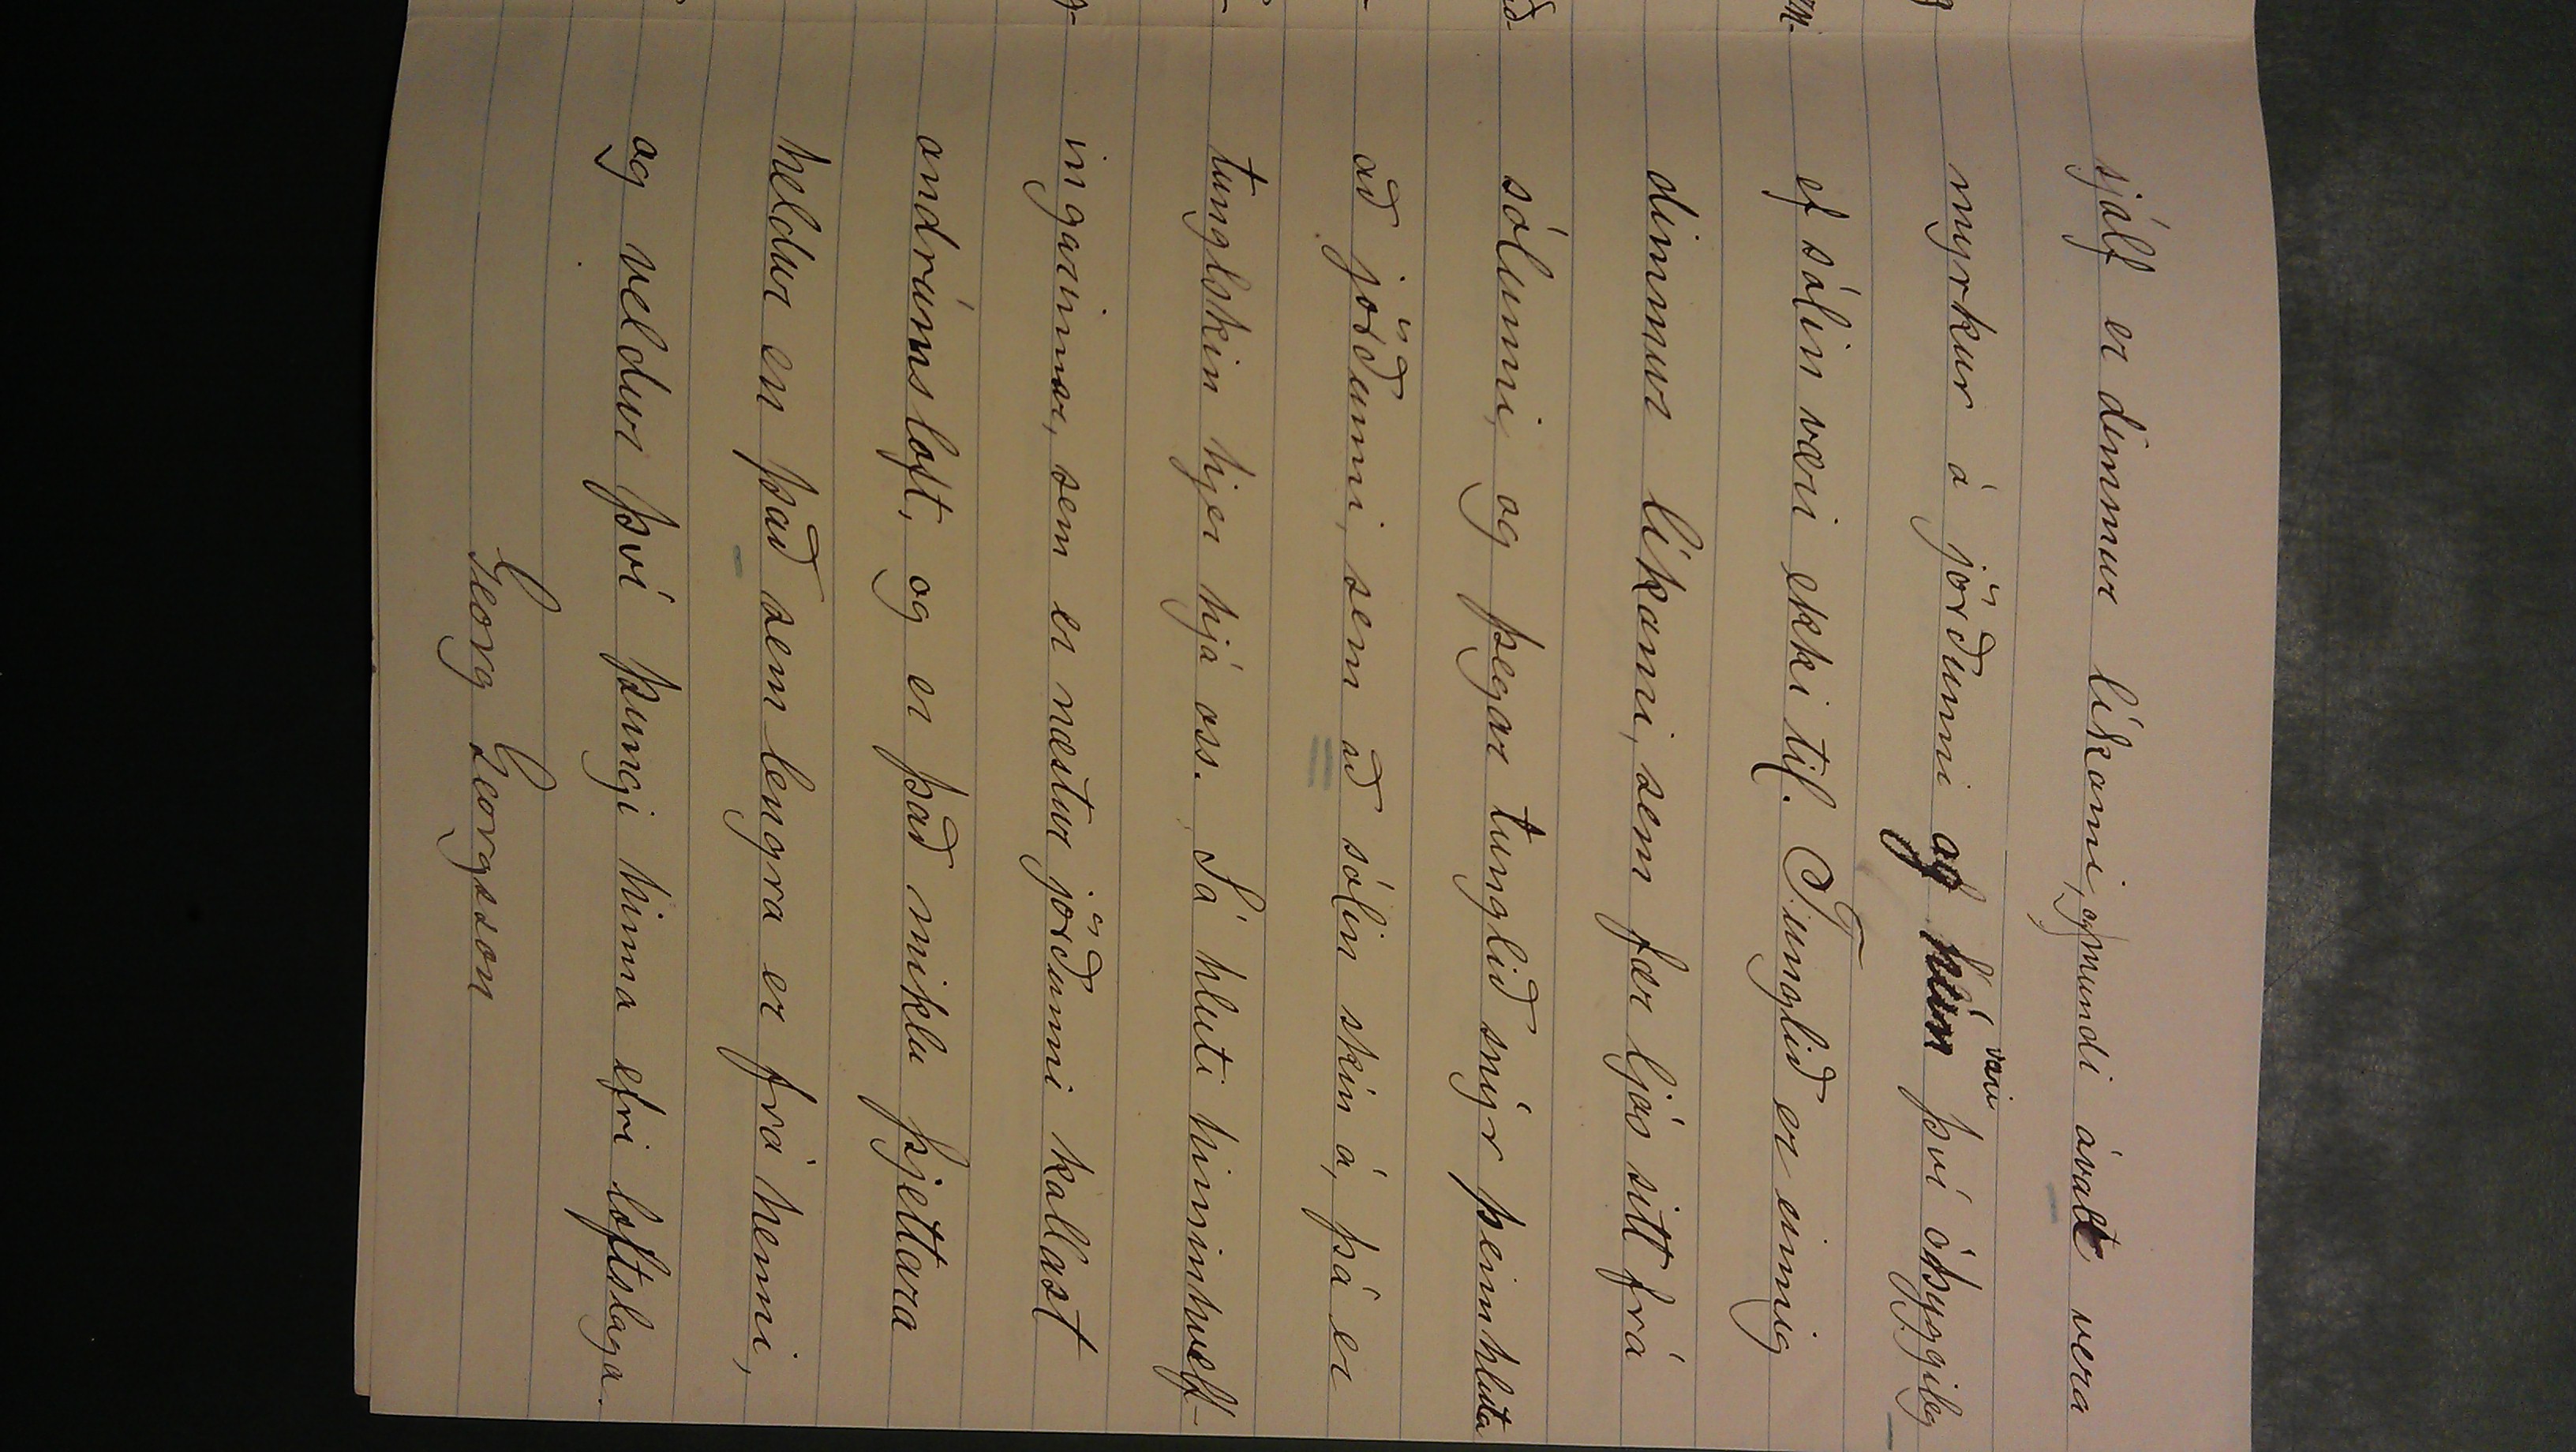 sjálf er dimmur líkami, og mundi ávalt vera
myrkur á jörðunni og hún væri því óbyggileg
ef sólin væri ekki til. Tunglið er einnig
dimmur líkami, sem fær ljós sitt frá
sólunni, og þegar tunglið snýr þeim hluta
að jörðunni, sem að sólin skín á, þá er
tunglskin hjer hjá oss. Sá hluti himinhvelf-
ingarinnar, sem er næstur jörðunni kallast
andrúmsloft, og er það miklu þjettara
heldur en það sem lengra er frá henni,
og veldur því þungi hinna efri loftslaga.
Georg Georgsson